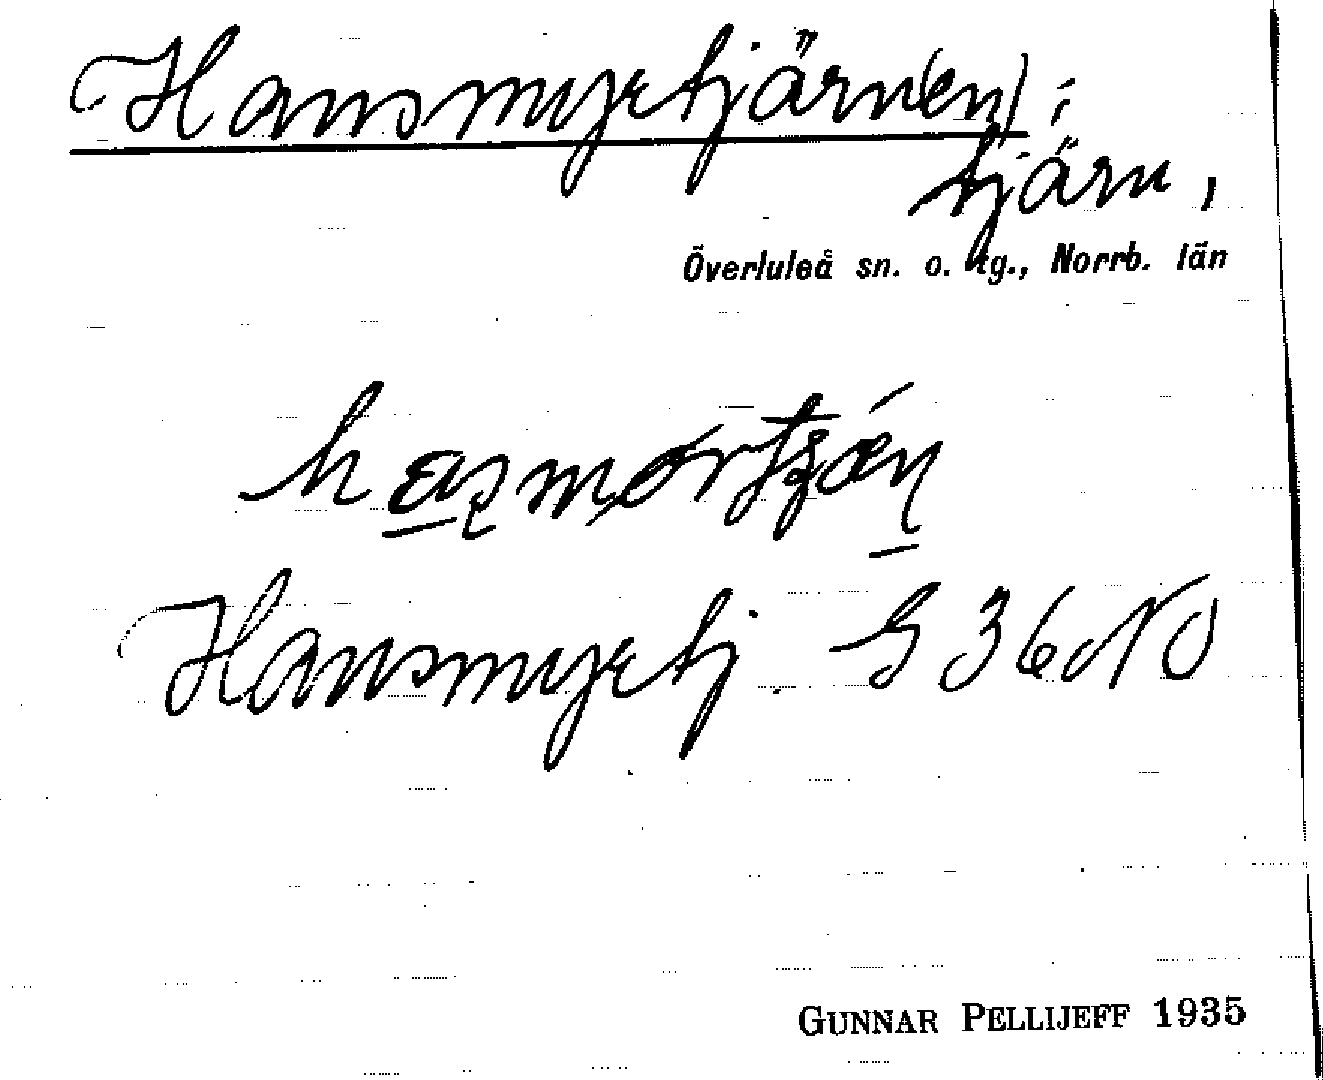 Hansmyrtjärn(en);
tjärn,
Överluleå sn. o. tg., Norrb. län
Hansmyrtj. G 36 NO
GUNNAR PELLIJEFF 1935